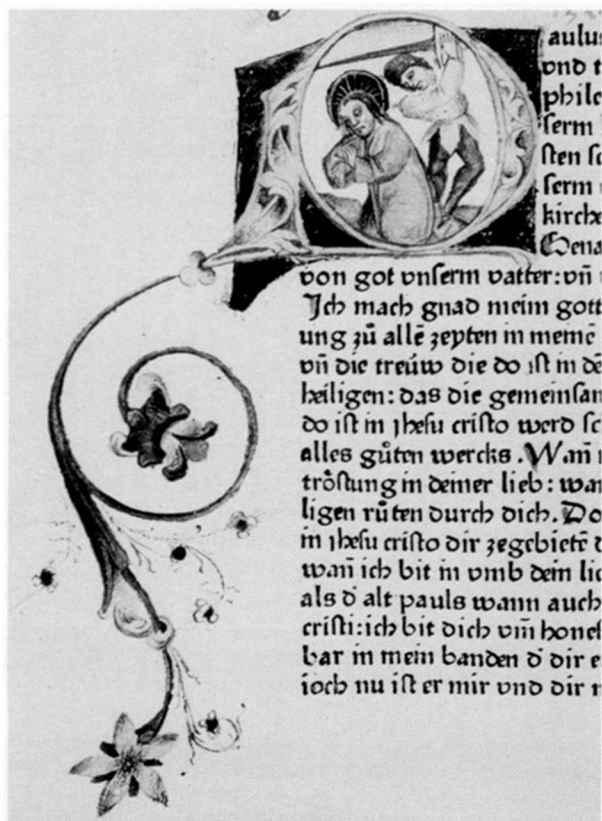 aulus
vnd t
philo
serm
sten sc
serm v
kirche
Gena
von got vnserm vatter: vñ v
Ich mach gnad meim gott
ung zů allē zeyten in memē
vñ die treúw die do ist in dē
heiligen: das die gemeinsam
do ist in jhesu cristo werd sc
alles gůten wercks. Wañ i
trôstung in deiner lieb: wan
ligen růten durch dich. Do
in jhesu cristo dir zegbietē d
wañ ich bit in vmb dein lie
als d᷑ alt pauls wann auch
cristi: ich bit dich vm̄ hones
bar in mein banden d᷑ dir e
ioch nu ist er mir vnd dir n